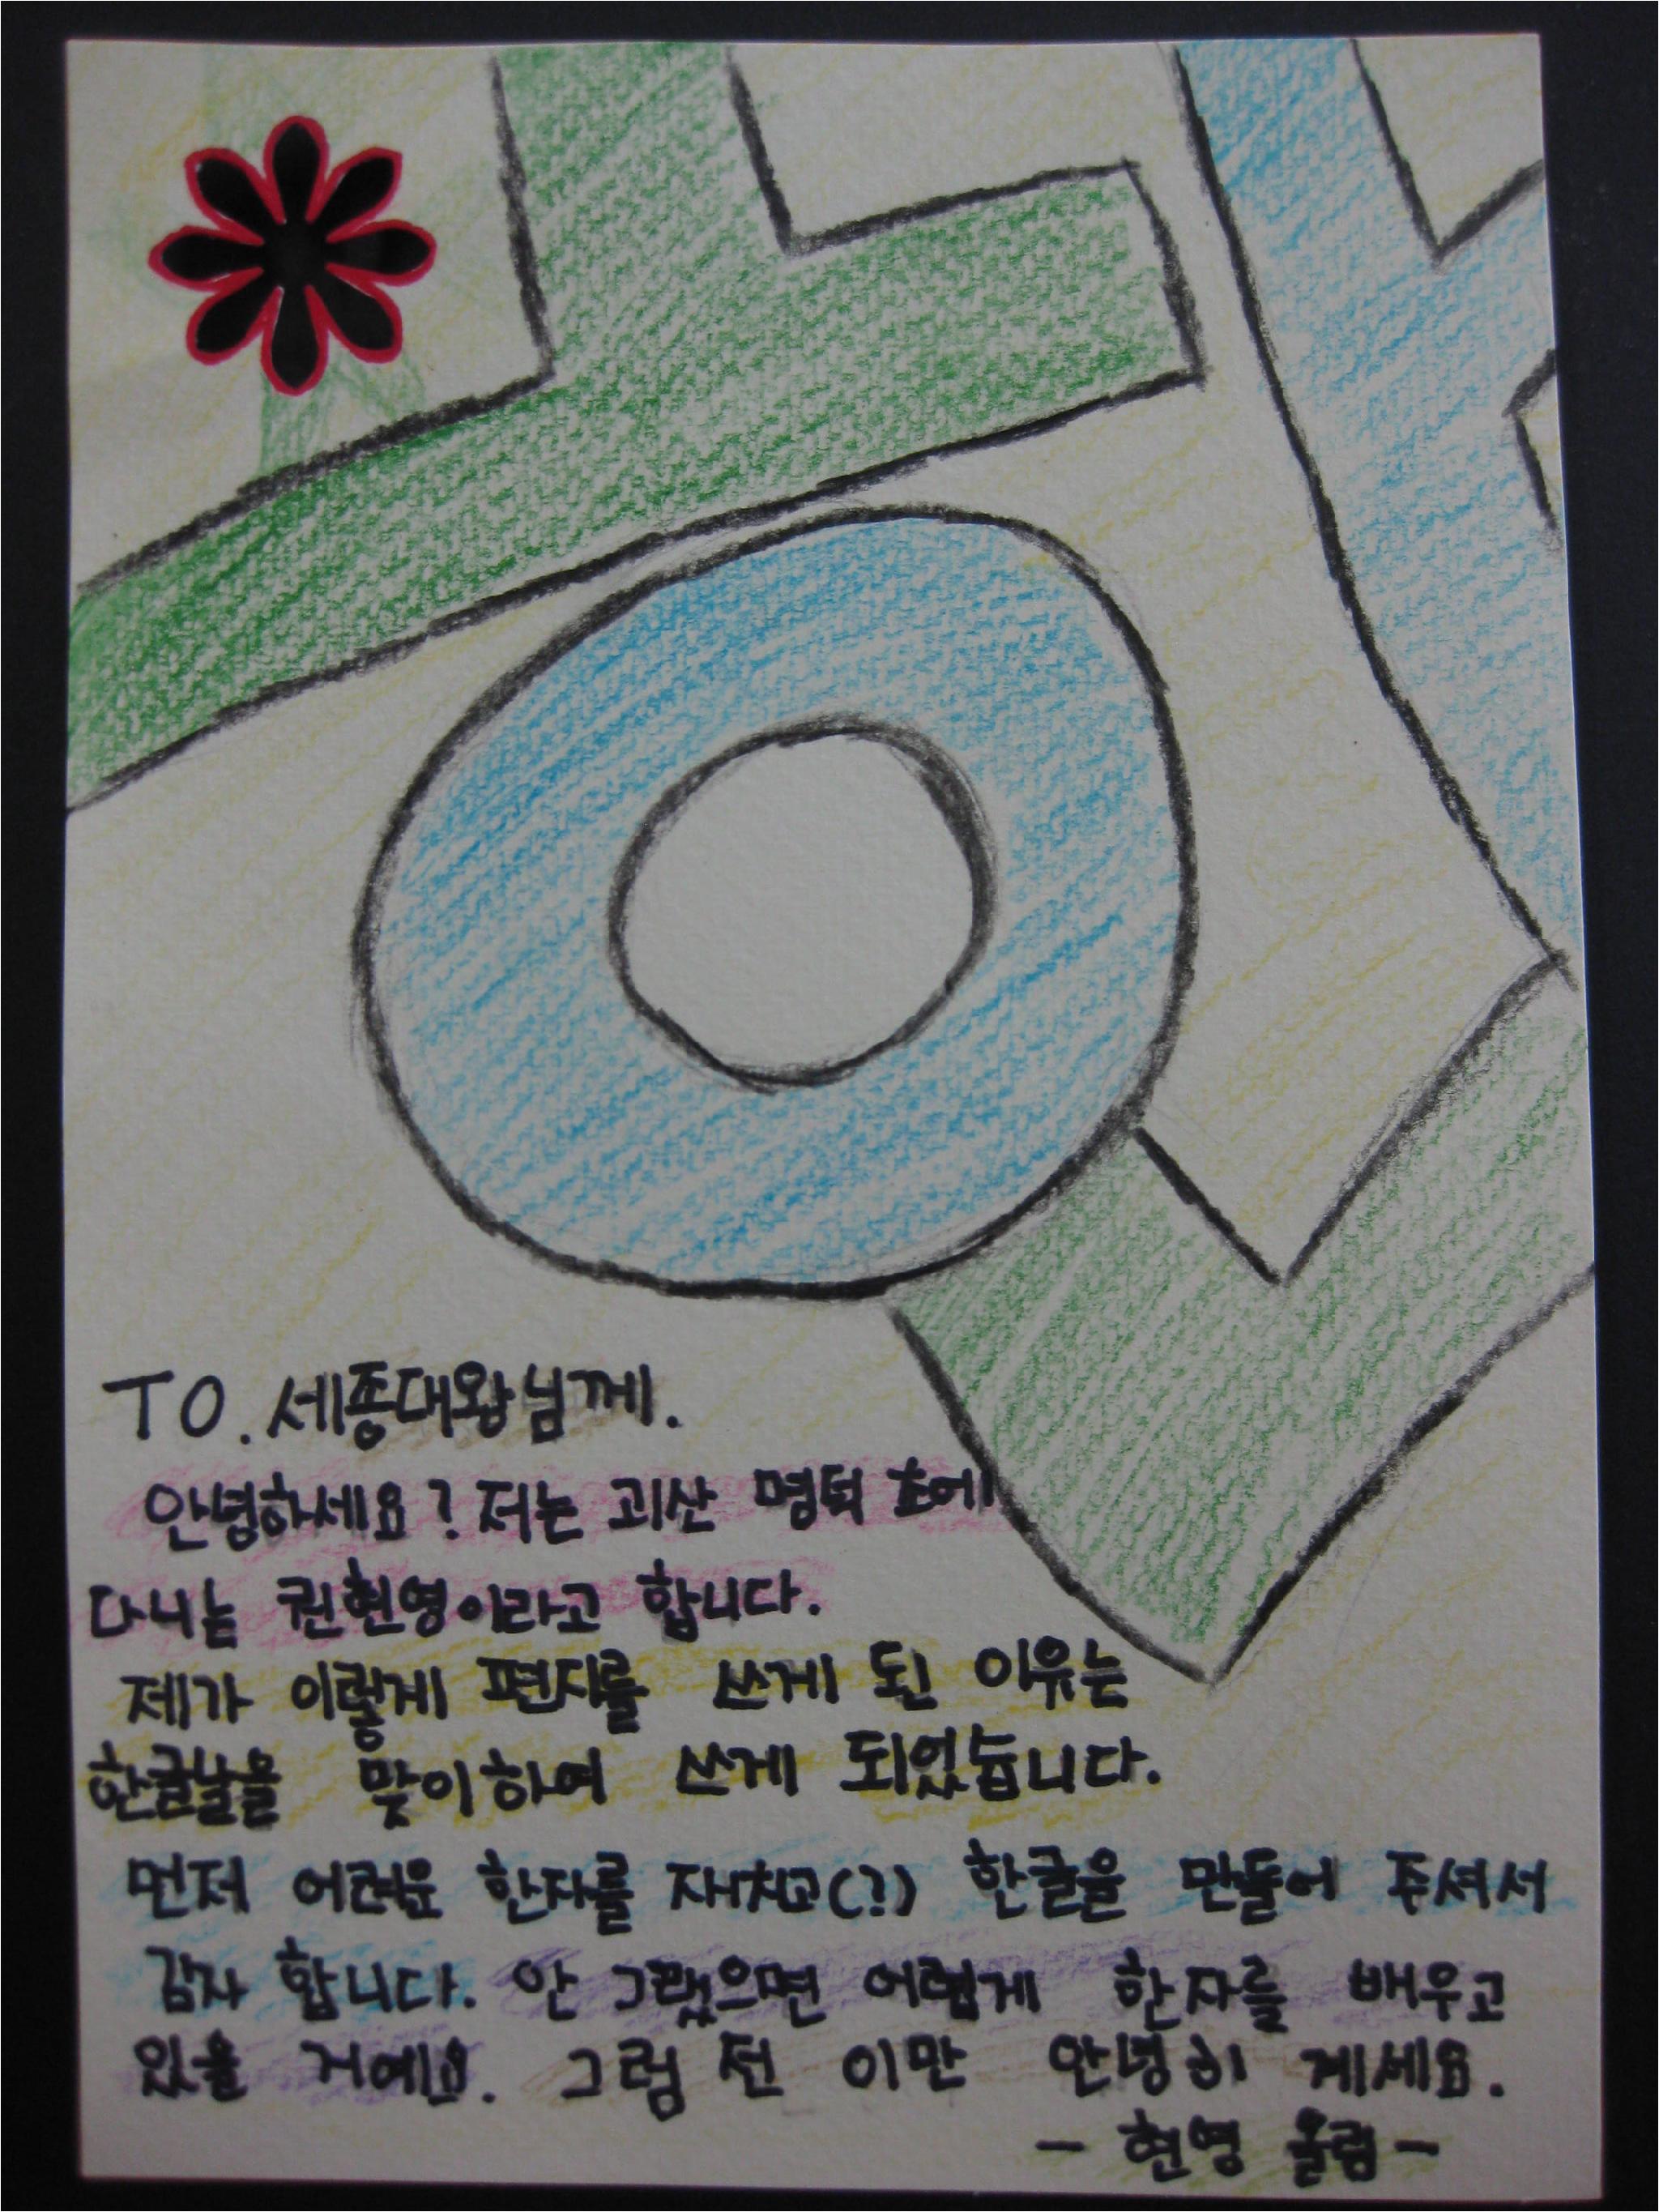 TO. 세종대왕님께.
안녕하세요? 저는 괴산 명덕 초에
다니는 권현영이라고 합니다.
제가 이렇게 편지를 쓰게 된 이유는
한글날을 맞이하여 쓰게 되었습니다.
먼저 어려운 한자를 재치고(?) 한글을 만들어 주셔서
감사 합니다. 안 그랬으면 어렵게 한자를 배우고
있을 거예요. 그럼 전 이만 안녕히 계세요.
- 현영 올림 -